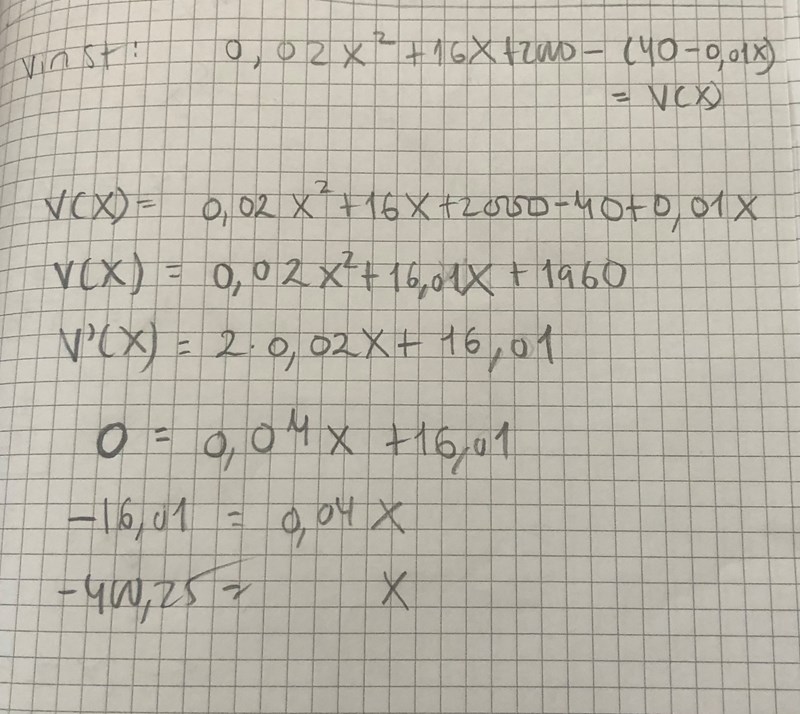 Vinst: 0,02x² + 16x + 2000 - (40 - 0,01x)
= V(x)
V(x) = 0,02x² + 16x + 2000 - 40 + 0,01x
V(x) = 0,02x² + 16,01x + 1960
V'(x) = 2·0,02x + 16,01
0 = 0,04x + 16,01
-16,01 = 0,04x
-400,25 = x